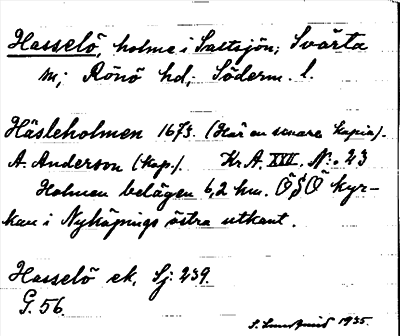 Hasselö, holme i Saltsjön; Svärta
sn; Rönö hd; Söderm. l.
Häsleholmen 1673. (Här en senare kopia).
A. Anderson (kop.). Kr. A. XXII. N:o 23
Holmen belägen 6,2 km. ÖSÖ kyr-
kan i Nyköpings östra utkant.
Hasselö ek. Sj. 239.
G. 56.
1935.